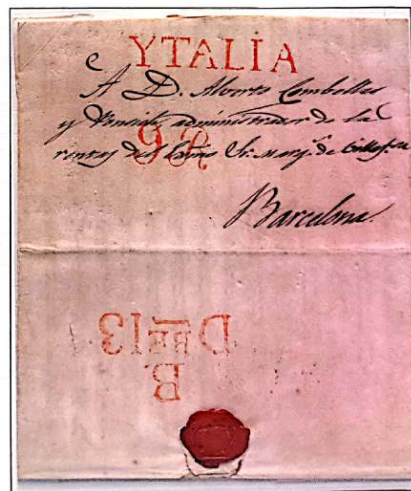 YTALIA
A D. Alverto Combelles
y Poncich, administrador de las
rentas del Exmo Sr. Marq.s de
9 R
Barcelona.
B.
DBRE 13